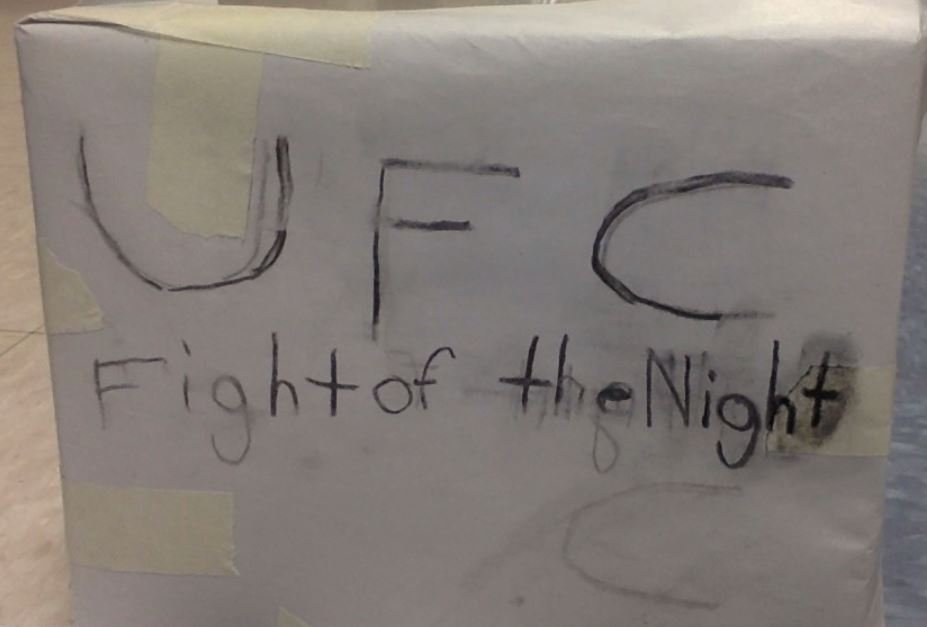 UFC
Fight of the Night
C